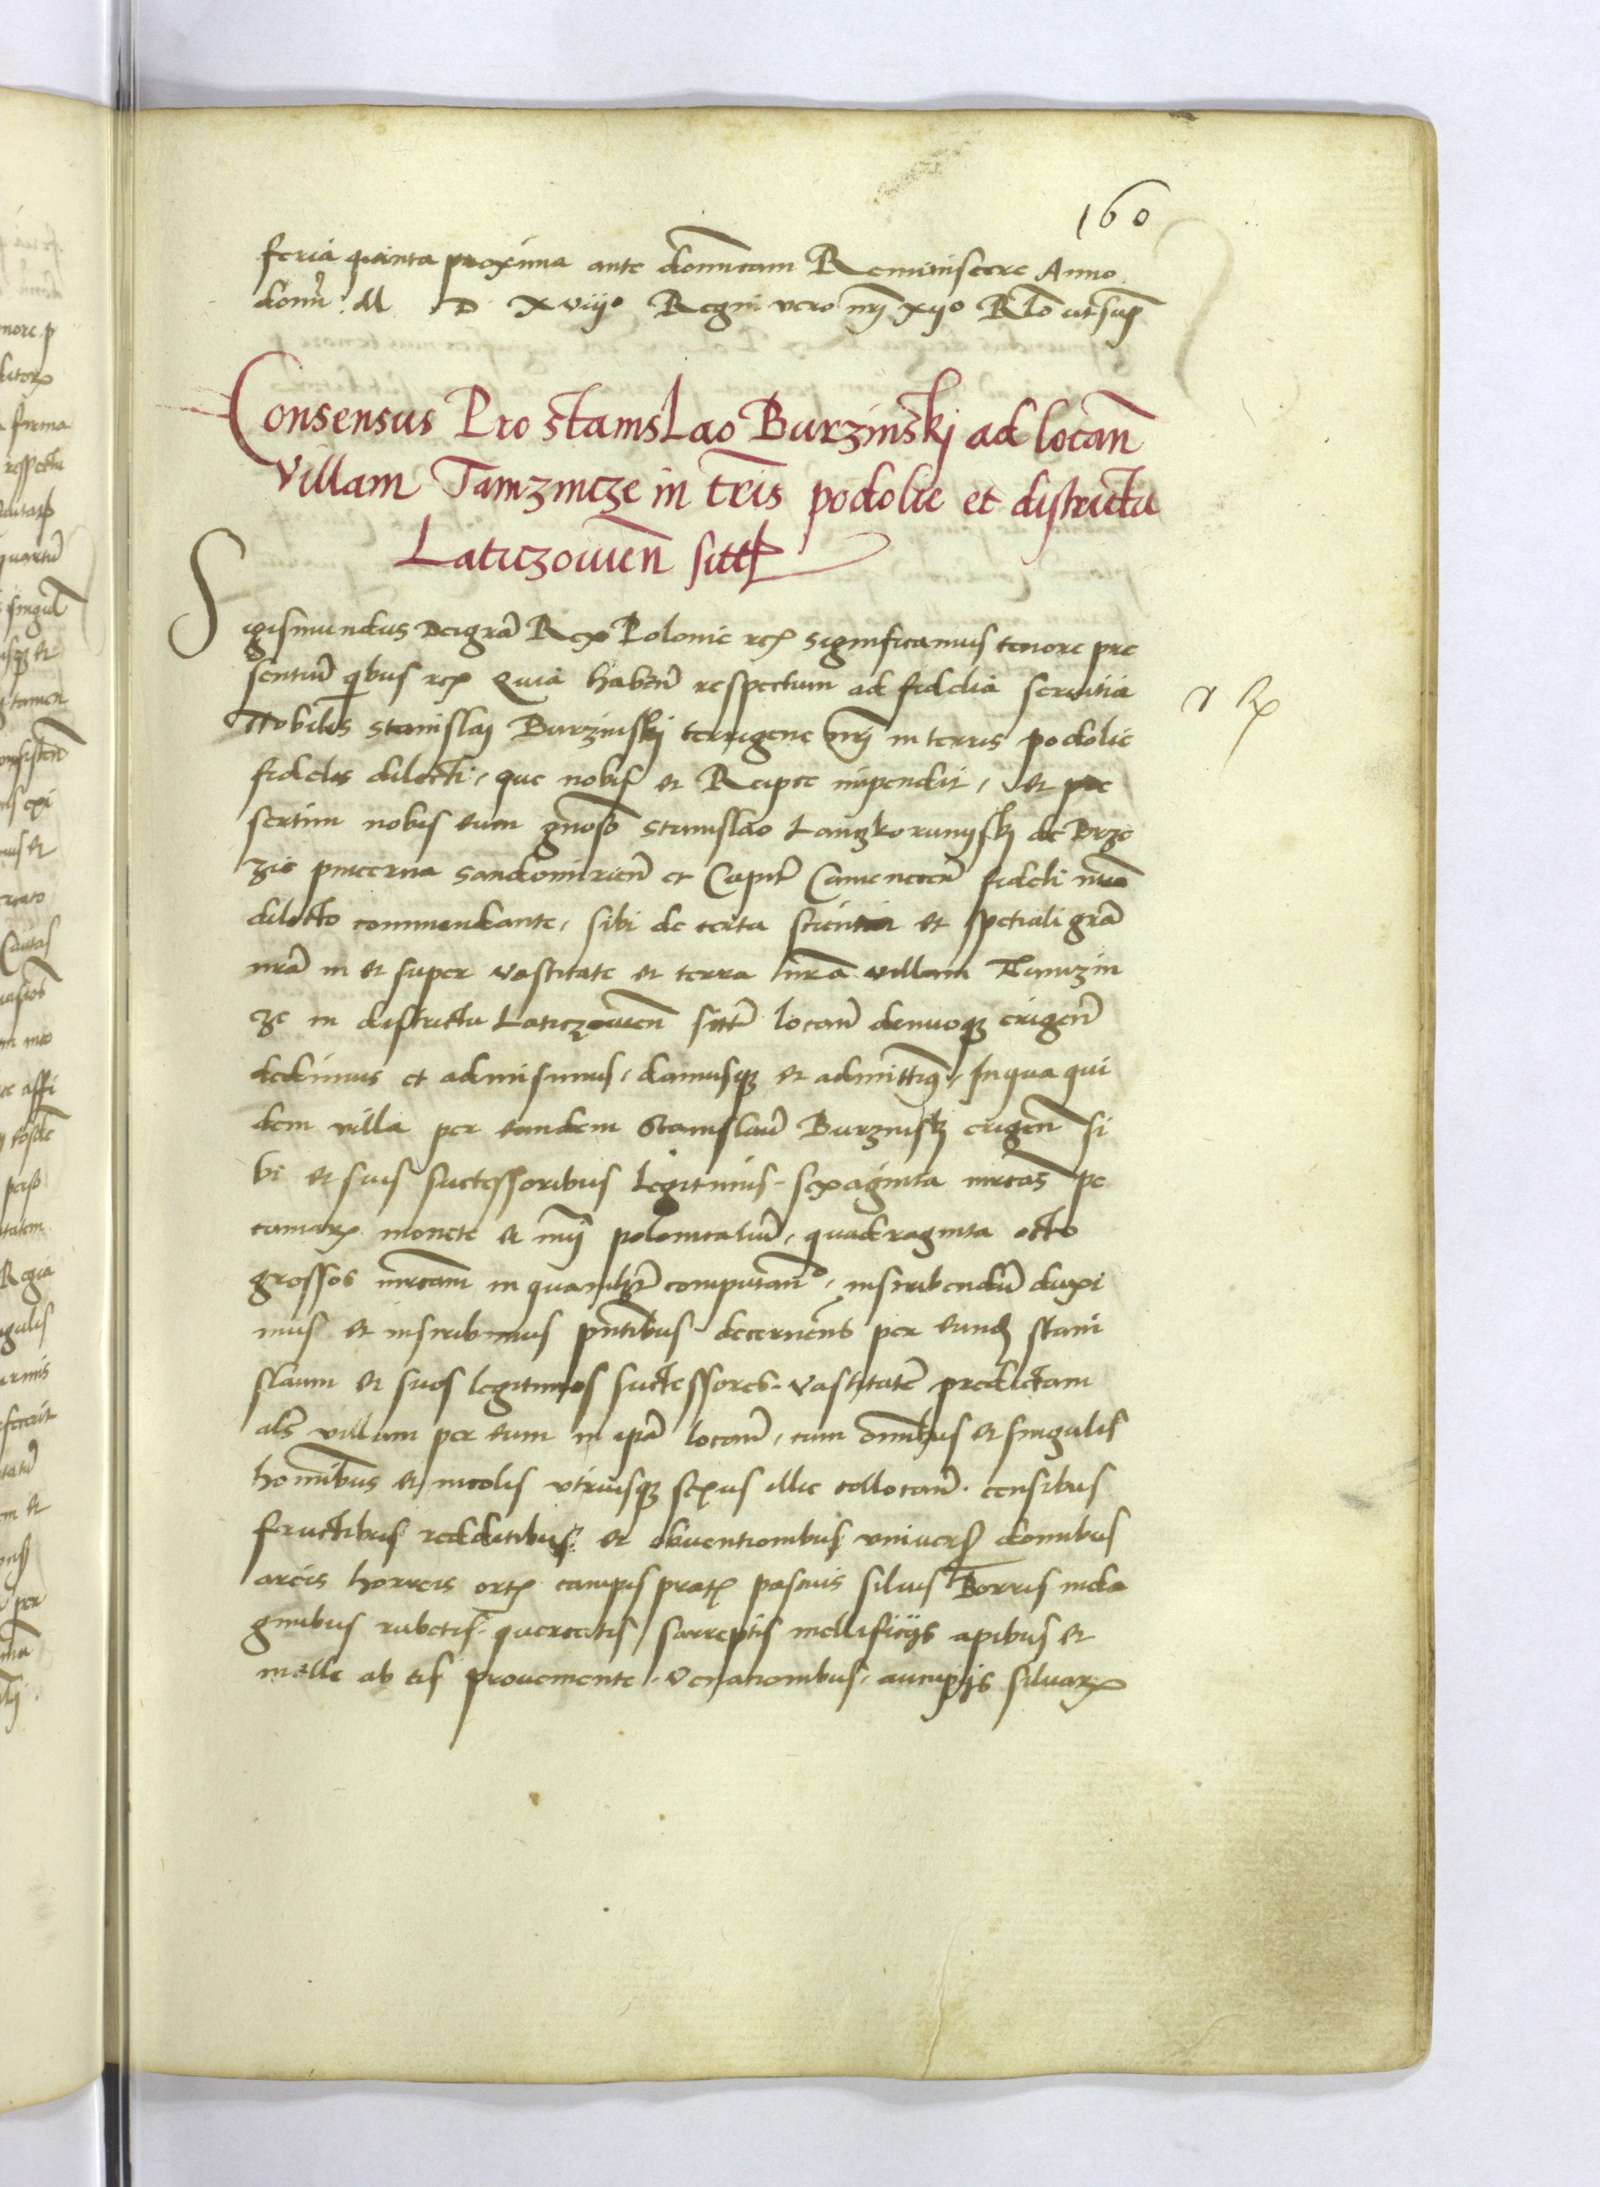 160
feria quinta proxima ante domīcam Reminiscere Anno
domī M D xviijo Regni vero nrī xijo Rlō ut sup
Consensus Pro Stanislao Burzinskj ad locan̄
villam Tamzincze in tr̄is podolie et districtu
Laticzovien̄ sitt
Sigismundus Dei grā Rex Polonie rcꝫ significamus tenore pre
sentiū qbus rcꝫ Quia haben̄ respectum ad fidelia servitia
Nobilis Stanislaj Burzinskj terrigene nrī in terris podolie
fidelis dilecti, que nobis et Reipce impendit, et pre
sertim nobis eum gnōso Stanislao Lanczkorunyskj de Brze
zie pincerna Sandomirien̄ et Capit̄ Camenecen̄ fideli nrō
dilecto commendante, sibi de certa scientia et spetiali grā
nrā in et super vastitate et terra nrā villam Tamzin
cze in districtu Laticzovien̄ sitt̄ locan̄ denuoqꝫ erigen̄
dedimus et admisimus, damusqꝫ et admittimꝰ, In qua qui
dem villa per eundem Stanislaū Burzinskj erigen̄ si
bi et suis successoribus legitimis sexaginta mrcas pe
cuniarꝫ monete et nrī polonicaliū, quadraginta octo
grossos mrcam in quamlꝫt computan̄o, inscribendū duxi
mus et inscribimus pn̄tibus decernen̄s per eundꝫ Stani
slaum et suos legitimos successores vastitatē predictam
als villam per eum in ipā locan̄, cum om̄ibus et singulis
homībus et incolis utriusqꝫ sexus illic collocan̄ censibus
fructibus redditibus et obventionibus univers domibus
areis horreis ortꝫ campis pratꝫ pascuis silvis Borris inda
ginibus rubetis quercetis sarreptis mellificijs apibus et
melle ab eis proveniente venationibus aucupijs silvarꝫ